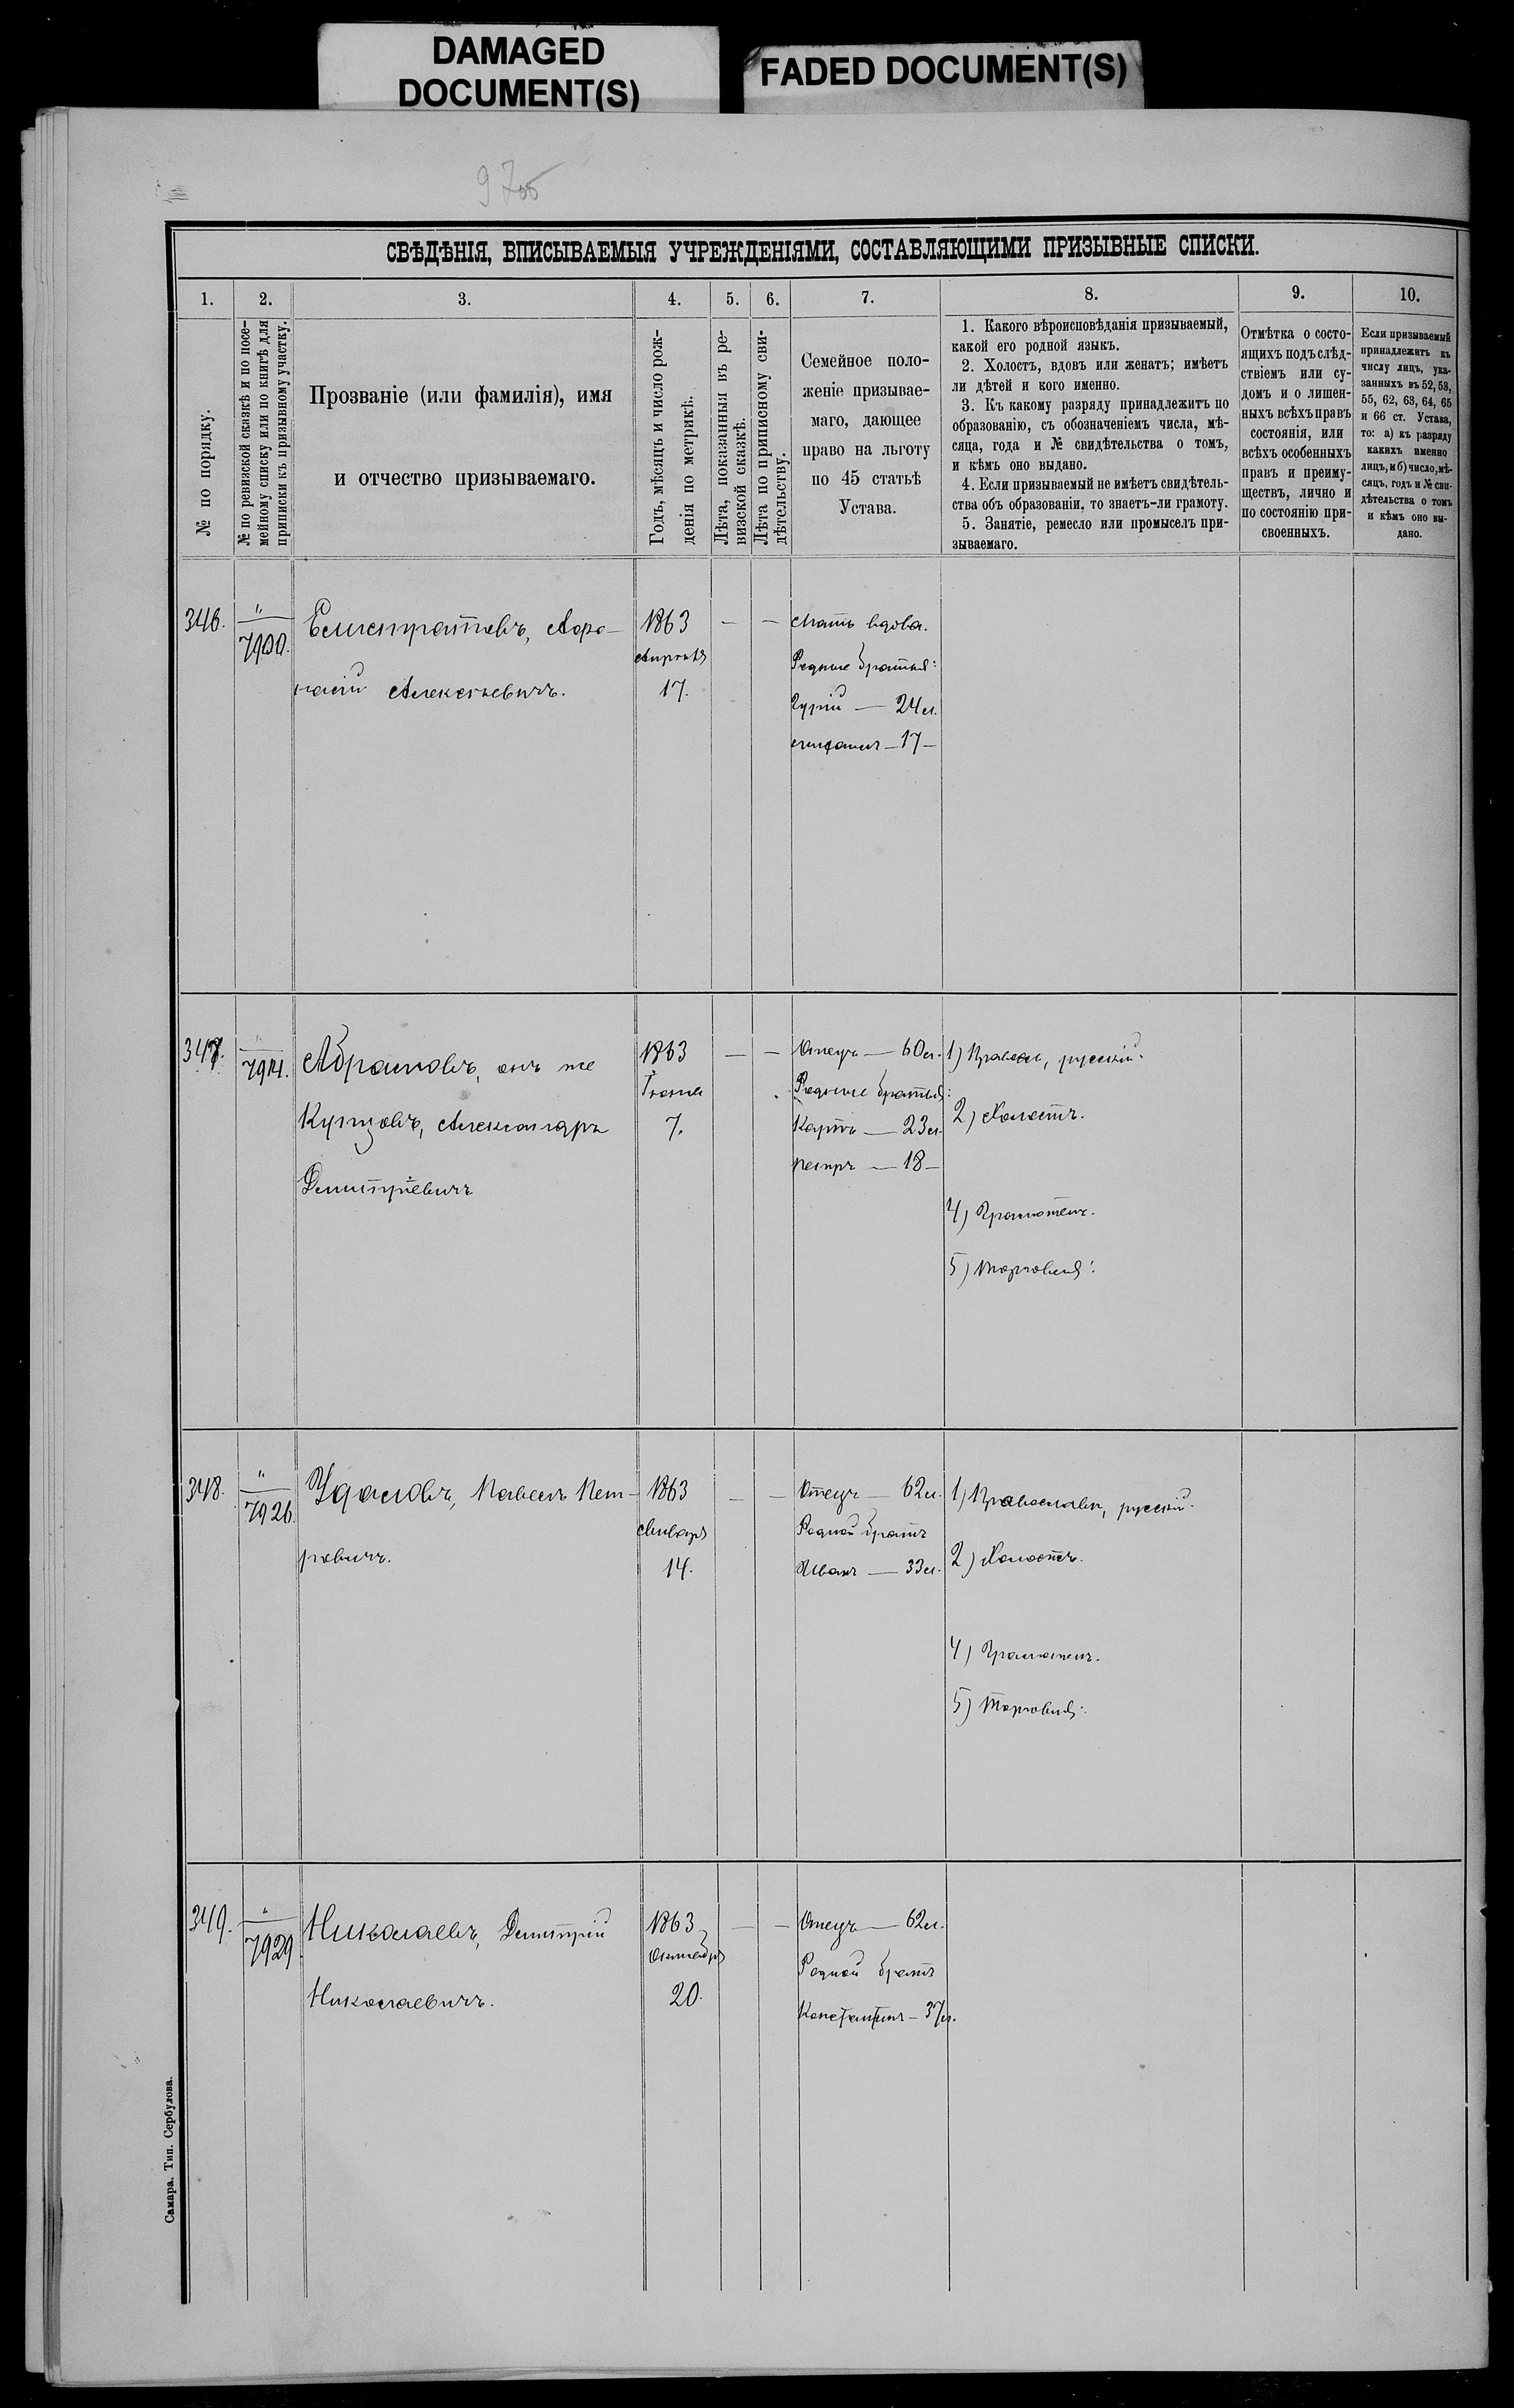 DAMAGED
DOCUMENT(S)
FADED DOCUMENT(S)
СВѢДѢНІЯ, ВПИСЫВАЕМЫЯ УЧРЕЖДЕНІЯМИ, СОСТАВЛЯЮЩИМИ ПРИЗЫВНЫЕ СПИСКИ.
1.
2.
3.
4.
5.
6.
7.
8.
9.
10.
№ по порядку.
№ по ревизской сказкѣ и по посе-
мейному списку или по книгѣ для
приписки къ призывному участку.
Прозваніе (или фамилія), имя
и отчество призываемаго.
Годъ, мѣсяцъ и число рож-
денія по метрикѣ.
Лѣта, показанныя въ ре-
визской сказкѣ.
Лѣта по приписному сви-
дѣтельству.
Семейное поло-
женіе призывае-
маго, дающее
право на льготу
по 45 статьѣ
Устава.
1. Какого вѣроисповѣданія призываемый,
какой его родной языкъ.
2. Холостъ, вдовъ или женатъ; имѣетъ
ли дѣтей и кого именно.
3. Къ какому разряду принадлежитъ по
образованію, съ обозначеніемъ числа, мѣ-
сяца, года и № свидѣтельства о томъ,
и кѣмъ оно выдано.
4. Если призываемый не имѣетъ свидѣтель-
ства объ образованіи, то знаетъ-ли грамоту.
5. Занятіе, ремесло или промыселъ при-
зываемаго.
Отмѣтка о состо-
ящихъ подъ слѣд-
ствіемъ или су-
домъ и о лишен-
ныхъ всѣхъ правъ
состоянія, или
всѣхъ особенныхъ
правъ и преиму-
ществъ, лично и
по состоянію при-
своенныхъ.
Если призываемый
принадлежитъ къ
числу лицъ, ука-
занныхъ въ 52, 53,
55, 62, 63, 64, 65
и 66 ст. Устава,
то: а) къ разряду
какихъ именно
лицъ, и б) число, мѣ-
сяцъ, годъ и № сви-
дѣтельства о томъ
и кѣмъ оно вы-
дано.
346.
"
7900.
Елистратовъ, Афа-
насій Алексѣевичъ.
1863
Апрѣля
17.
— —
Мать вдова.
Родные братья:
Гурій — 24 л.
— 17 —
347.
"
7914.
Абрамовъ, онъ же
Купцовъ, Александръ
Дмитріевичъ
1863
Іюня
7.
— —
Отецъ — 60 л.
Родные братья:
Карпъ — 23 л.
Петръ — 18 —
1) Правосл, русскій.
2) Холостъ.
4) Грамотенъ.
5) Торговля.
348.
"
7926
Удаловъ, Павелъ Пет-
ровичъ.
1863
Января
14.
— —
Отецъ — 62 л.
Родной братъ
Иванъ — 33 л.
1) Православн, русскій.
2) Холостъ.
4) Грамотенъ.
5) Торговля.
349.
"
7929
Николаевъ, Дмитрій
Николаевичъ.
1863
Октября
20.
— —
Отецъ — 62 л.
Родной братъ
Константинъ — 37 л.
Самара. Тип. Сербулова.